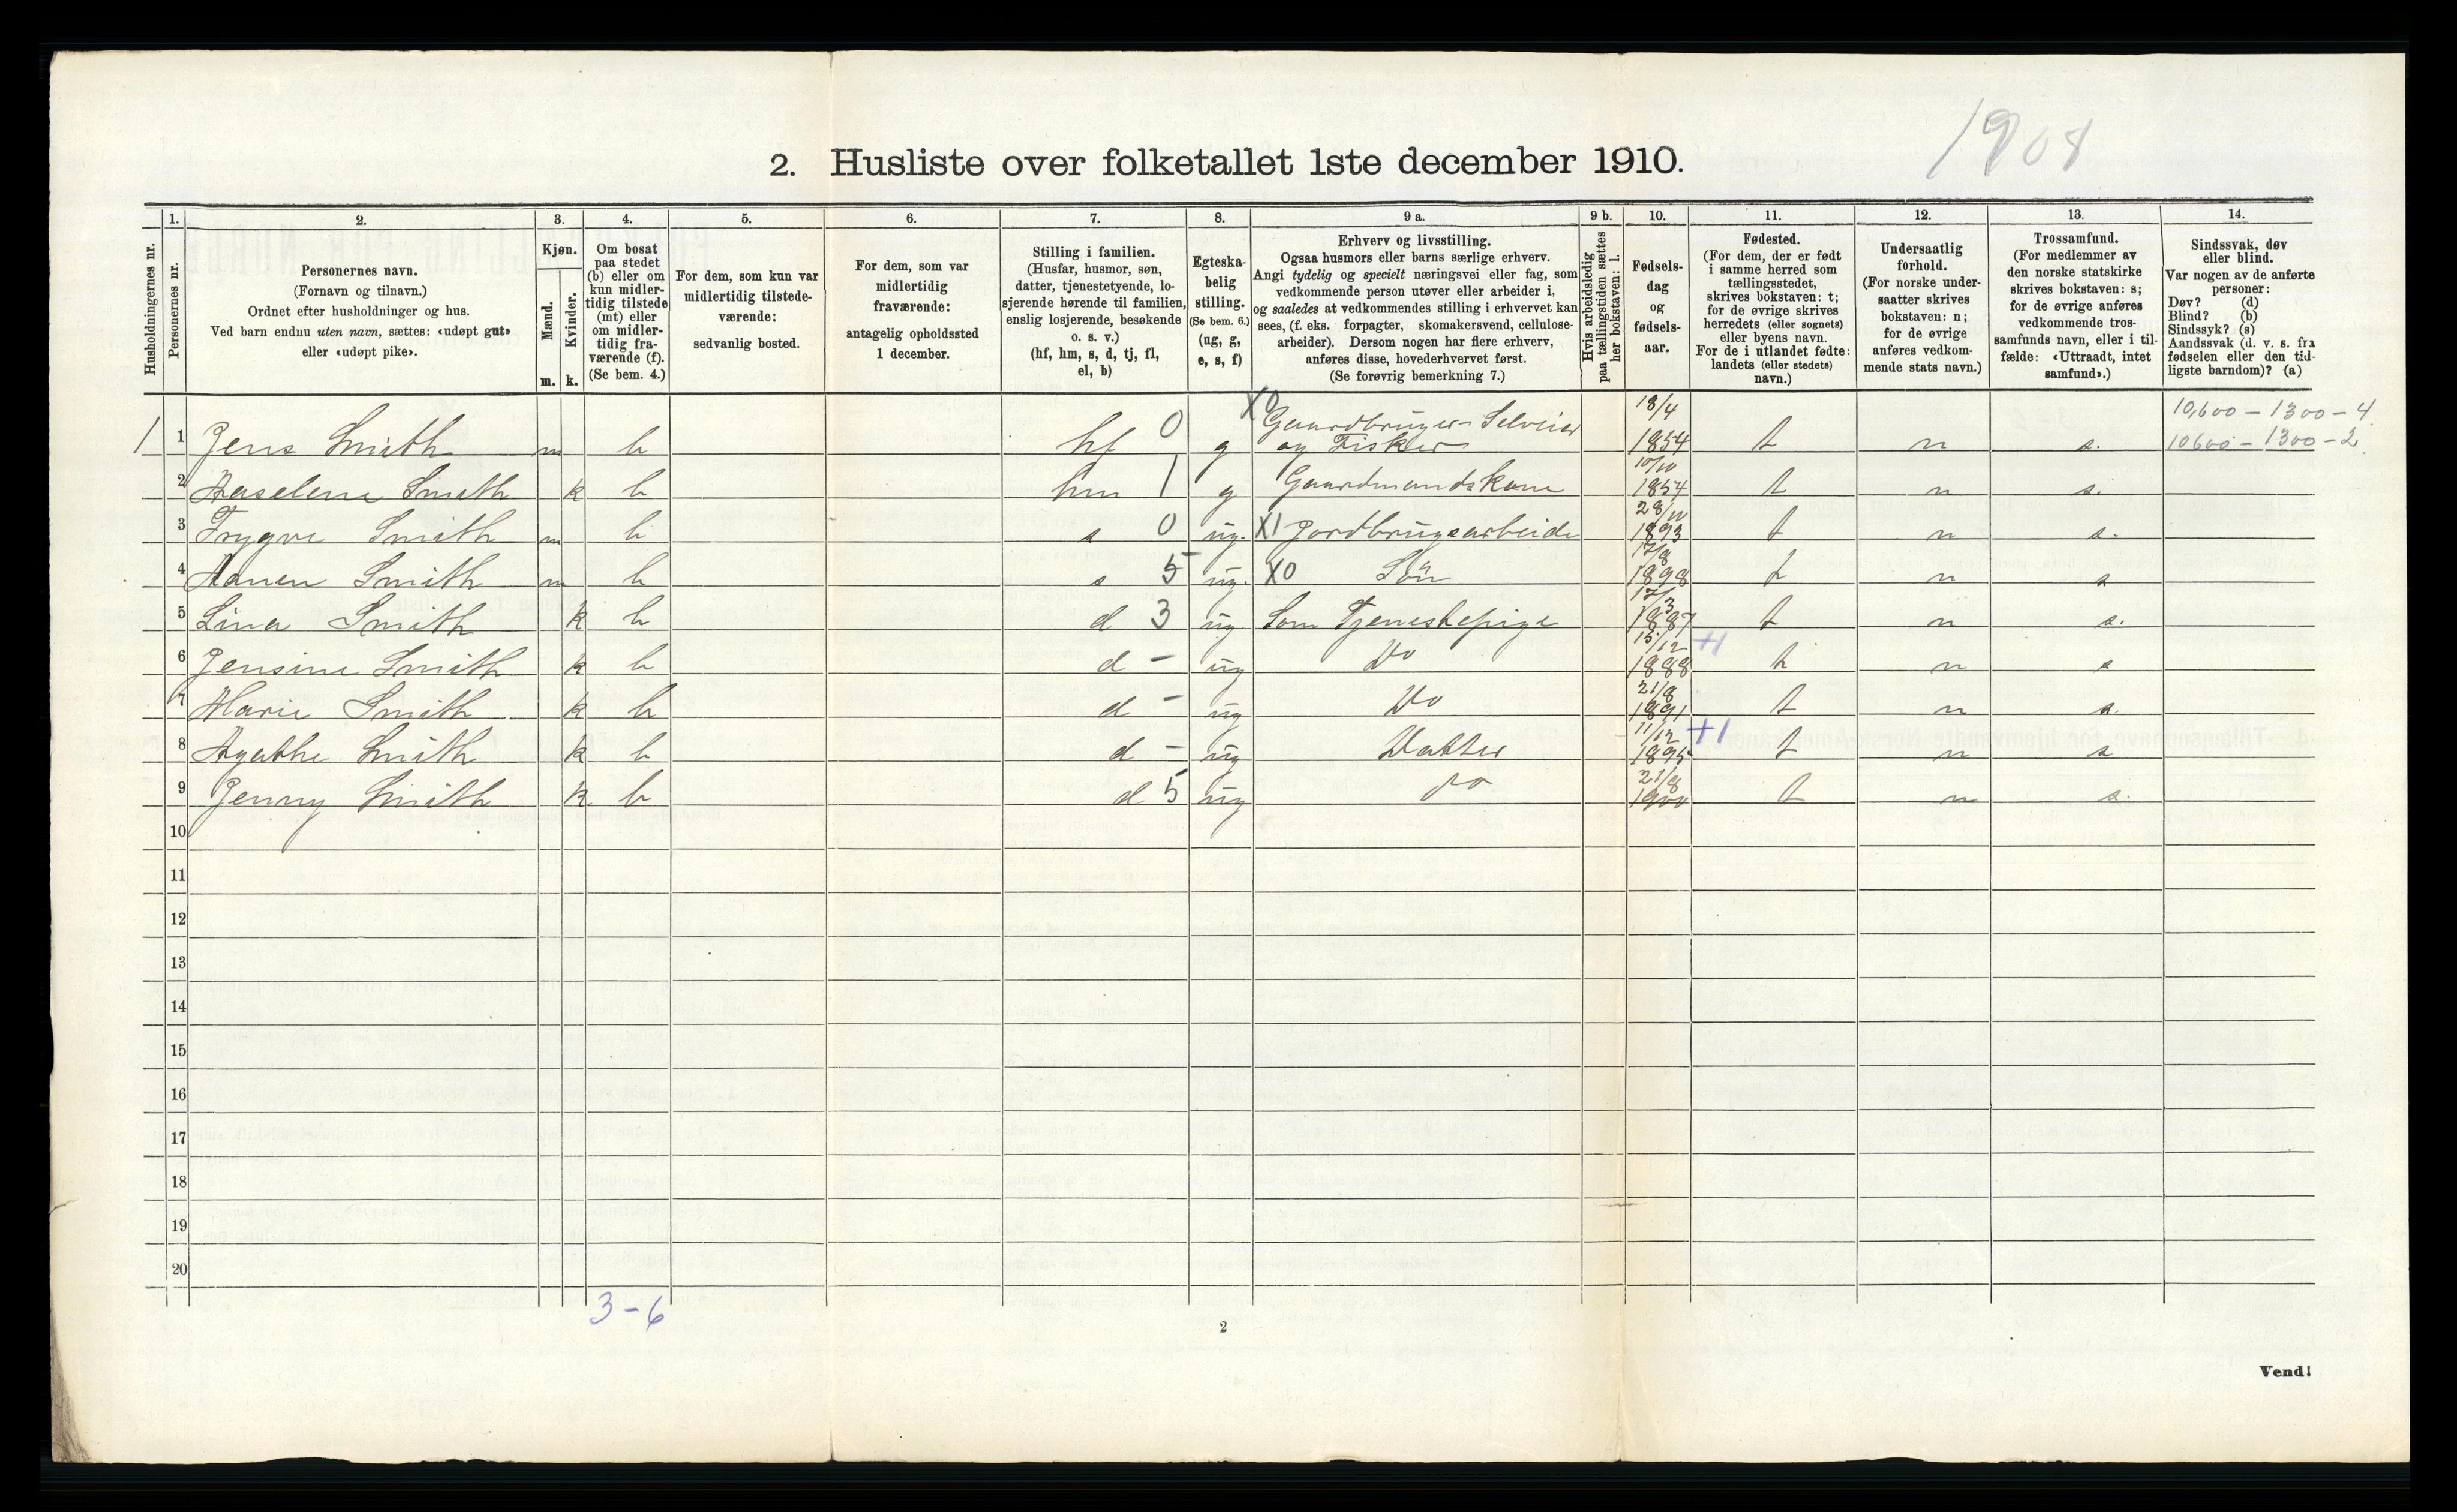 1908
2. Husliste over folketallet 1ste december 1910.
1. 2. 3. 4. 5. 6. 7. 8. 9 a. 9 b. 10. 11. 12. 13. 14.
Husholdningernes nr.
Personernes nr.
Personernes navn.
(Fornavn og tilnavn.)
Ordnet efter husholdninger og hus.
Ved barn endnu uten navn, sættes: «udøpt gut»
eller «udøpt pike».
Kjøn.
Mænd.
Kvinder.
m. k.
Om bosat
paa stedet
(b) eller om
kun midler-
tidig tilstede
(mt) eller
om midler-
tidig fra-
værende (f).
(Se bem. 4.)
For dem, som kun var
midlertidig tilstede-
værende:
sedvanlig bosted.
For dem, som var
midlertidig
fraværende:
antagelig opholdssted
1 december.
Stilling i familien.
(Husfar, husmor, søn,
datter, tjenestetyende, lo-
sjerende hørende til familien,
enslig losjerende, besøkende
o. s. v.)
(hf, hm, s, d, tj, fl,
el, b)
Egteska-
belig
stilling.
(Se bem. 6.)
(ug, g,
e, s, f)
Erhverv og livsstilling.
Ogsaa husmors eller barns særlige erhverv.
Angi tydelig og specielt næringsvei eller fag, som
vedkommende person utøver eller arbeider i,
og saaledes at vedkommendes stilling i erhvervet kan
sees, (f. eks. forpagter, skomakersvend, cellulose-
arbeider). Dersom nogen har flere erhverv,
anføres disse, hovederhvervet først.
(Se forøvrig bemerkning 7.)
Hvis arbeidsledig
paa tællingstiden sættes
her bokstaven: l.
Fødsels-
dag
og
fødsels-
aar.
Fødested.
(For dem, der er født
i samme herred som
tællingsstedet,
skrives bokstaven: t;
for de øvrige skrives
herredets (eller sognets)
eller byens navn.
For de i utlandet fødte:
landets (eller stedets)
navn.)
Undersaatlig
forhold.
(For norske under-
saatter skrives
bokstaven: n;
for de øvrige
anføres vedkom-
mende stats navn.)
Trossamfund.
(For medlemmer av
den norske statskirke
skrives bokstaven: s;
for de øvrige anføres
vedkommende tros-
samfunds navn, eller i til-
fælde: «Uttraadt, intet
samfund».)
Sindssvak, døv
eller blind.
Var nogen av de anførte
personer:
Døv? (d)
Blind? (b)
Sindssyk? (s)
Aandssvak (d. v. s. fra
fødselen eller den tid-
ligste barndom)? (a)
X0 Gaardbruger Selveier 18/4 10,600 – 1300 – 4
1 1 Jens Smith m b hf 0 g og Fisker 1854 t n s. 10600 – 1300 – 2
10/10
2 Haselene Smith k b hm 1 g Gaardmandskone 1854 t n s.
28/10
3 Trygve Smith m b s 0 ug. X1 Jordbrugsarbeide 1893 t n s.
17/8
4 Hanen Smith m b s 5 ug. X0 Sön 1898 t n s
17/3
5 Lina Smith k b d 3 ug Som Tjenestepige 1887 t n s.
15/12 +1
6 Jensine Smith k b d – ug Do 1888 t n s
21/8
7 Marie Smith k b d – ug Do 1891 t n s
11/12 +1
8 Agathe Smith k b d – ug Datter 1895 t n s
21/8
9 Jenny Smith k b d 5 ug do 1900 t n s.
10
11
12
13
14
15
16
17
18
19
20
3 – 6
2
Vend!